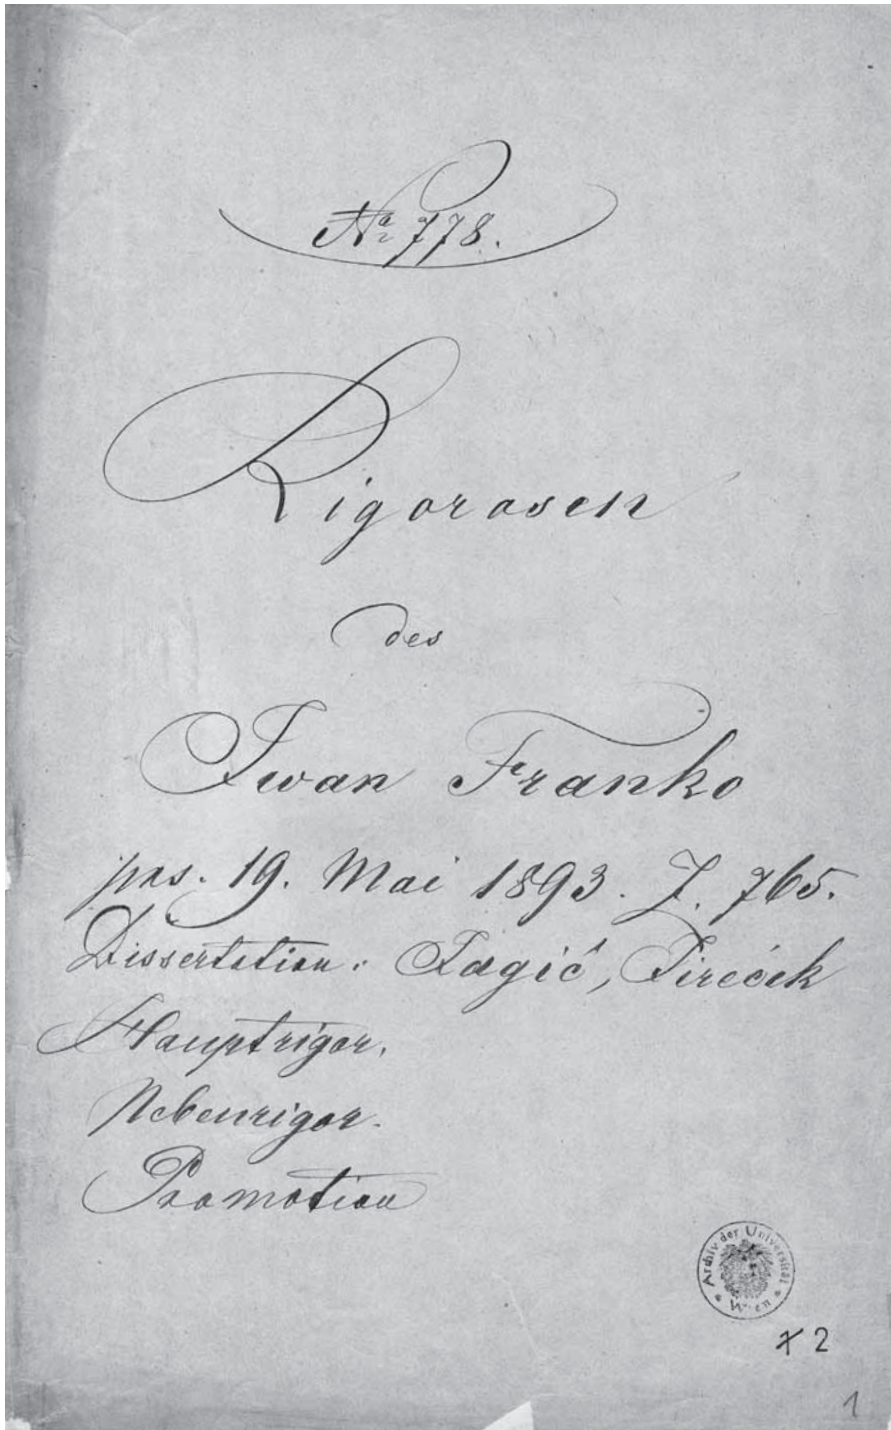 No 778.
Rigorosen
des
Iwan Franko
prs. 19. Mai 1893. Z. 765.
Dissertation: Jagić, Jireček
Hauptrigor.
Nebenrigor.
Promotion
Archiv der Universität
Wien
x 2
1